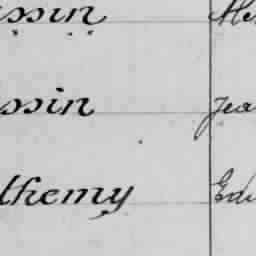 ssin
ssin Jea
themy Edu